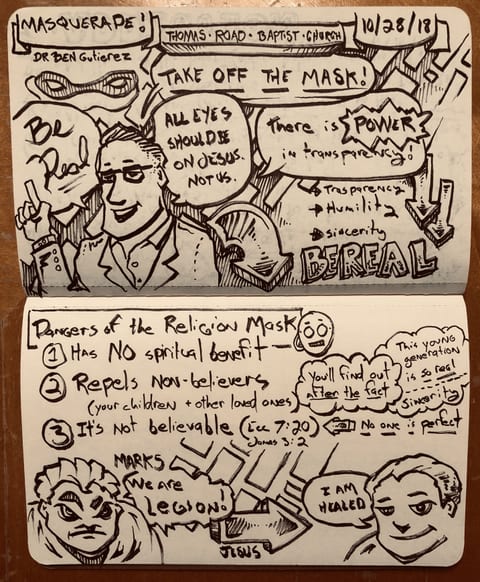 MASQUERADE!
THOMAS • ROAD • BAPTIST • CHURCH
10/28/18
DR BEN Gutierez
TAKE OFF THE MASK!
Be
Real
ALL EYES
SHOULD BE
ON JESUS.
NOT US.
There is POWER
in transparency!
→ Trasparency
→ Humility
→ sincerity
BE REAL
Dangers of the Religion Mask
1 Has NO spiritual benefit
2 Repels NON-believers
(your children + other loved ones)
3 It's not believable (Ecc 7:20)
James 3:2
No one is perfect
You'll find out
after the fact
This young
generation
is so real
Sincerity
MARK 5
We are
LEGION!
JESUS
I AM
HEALED